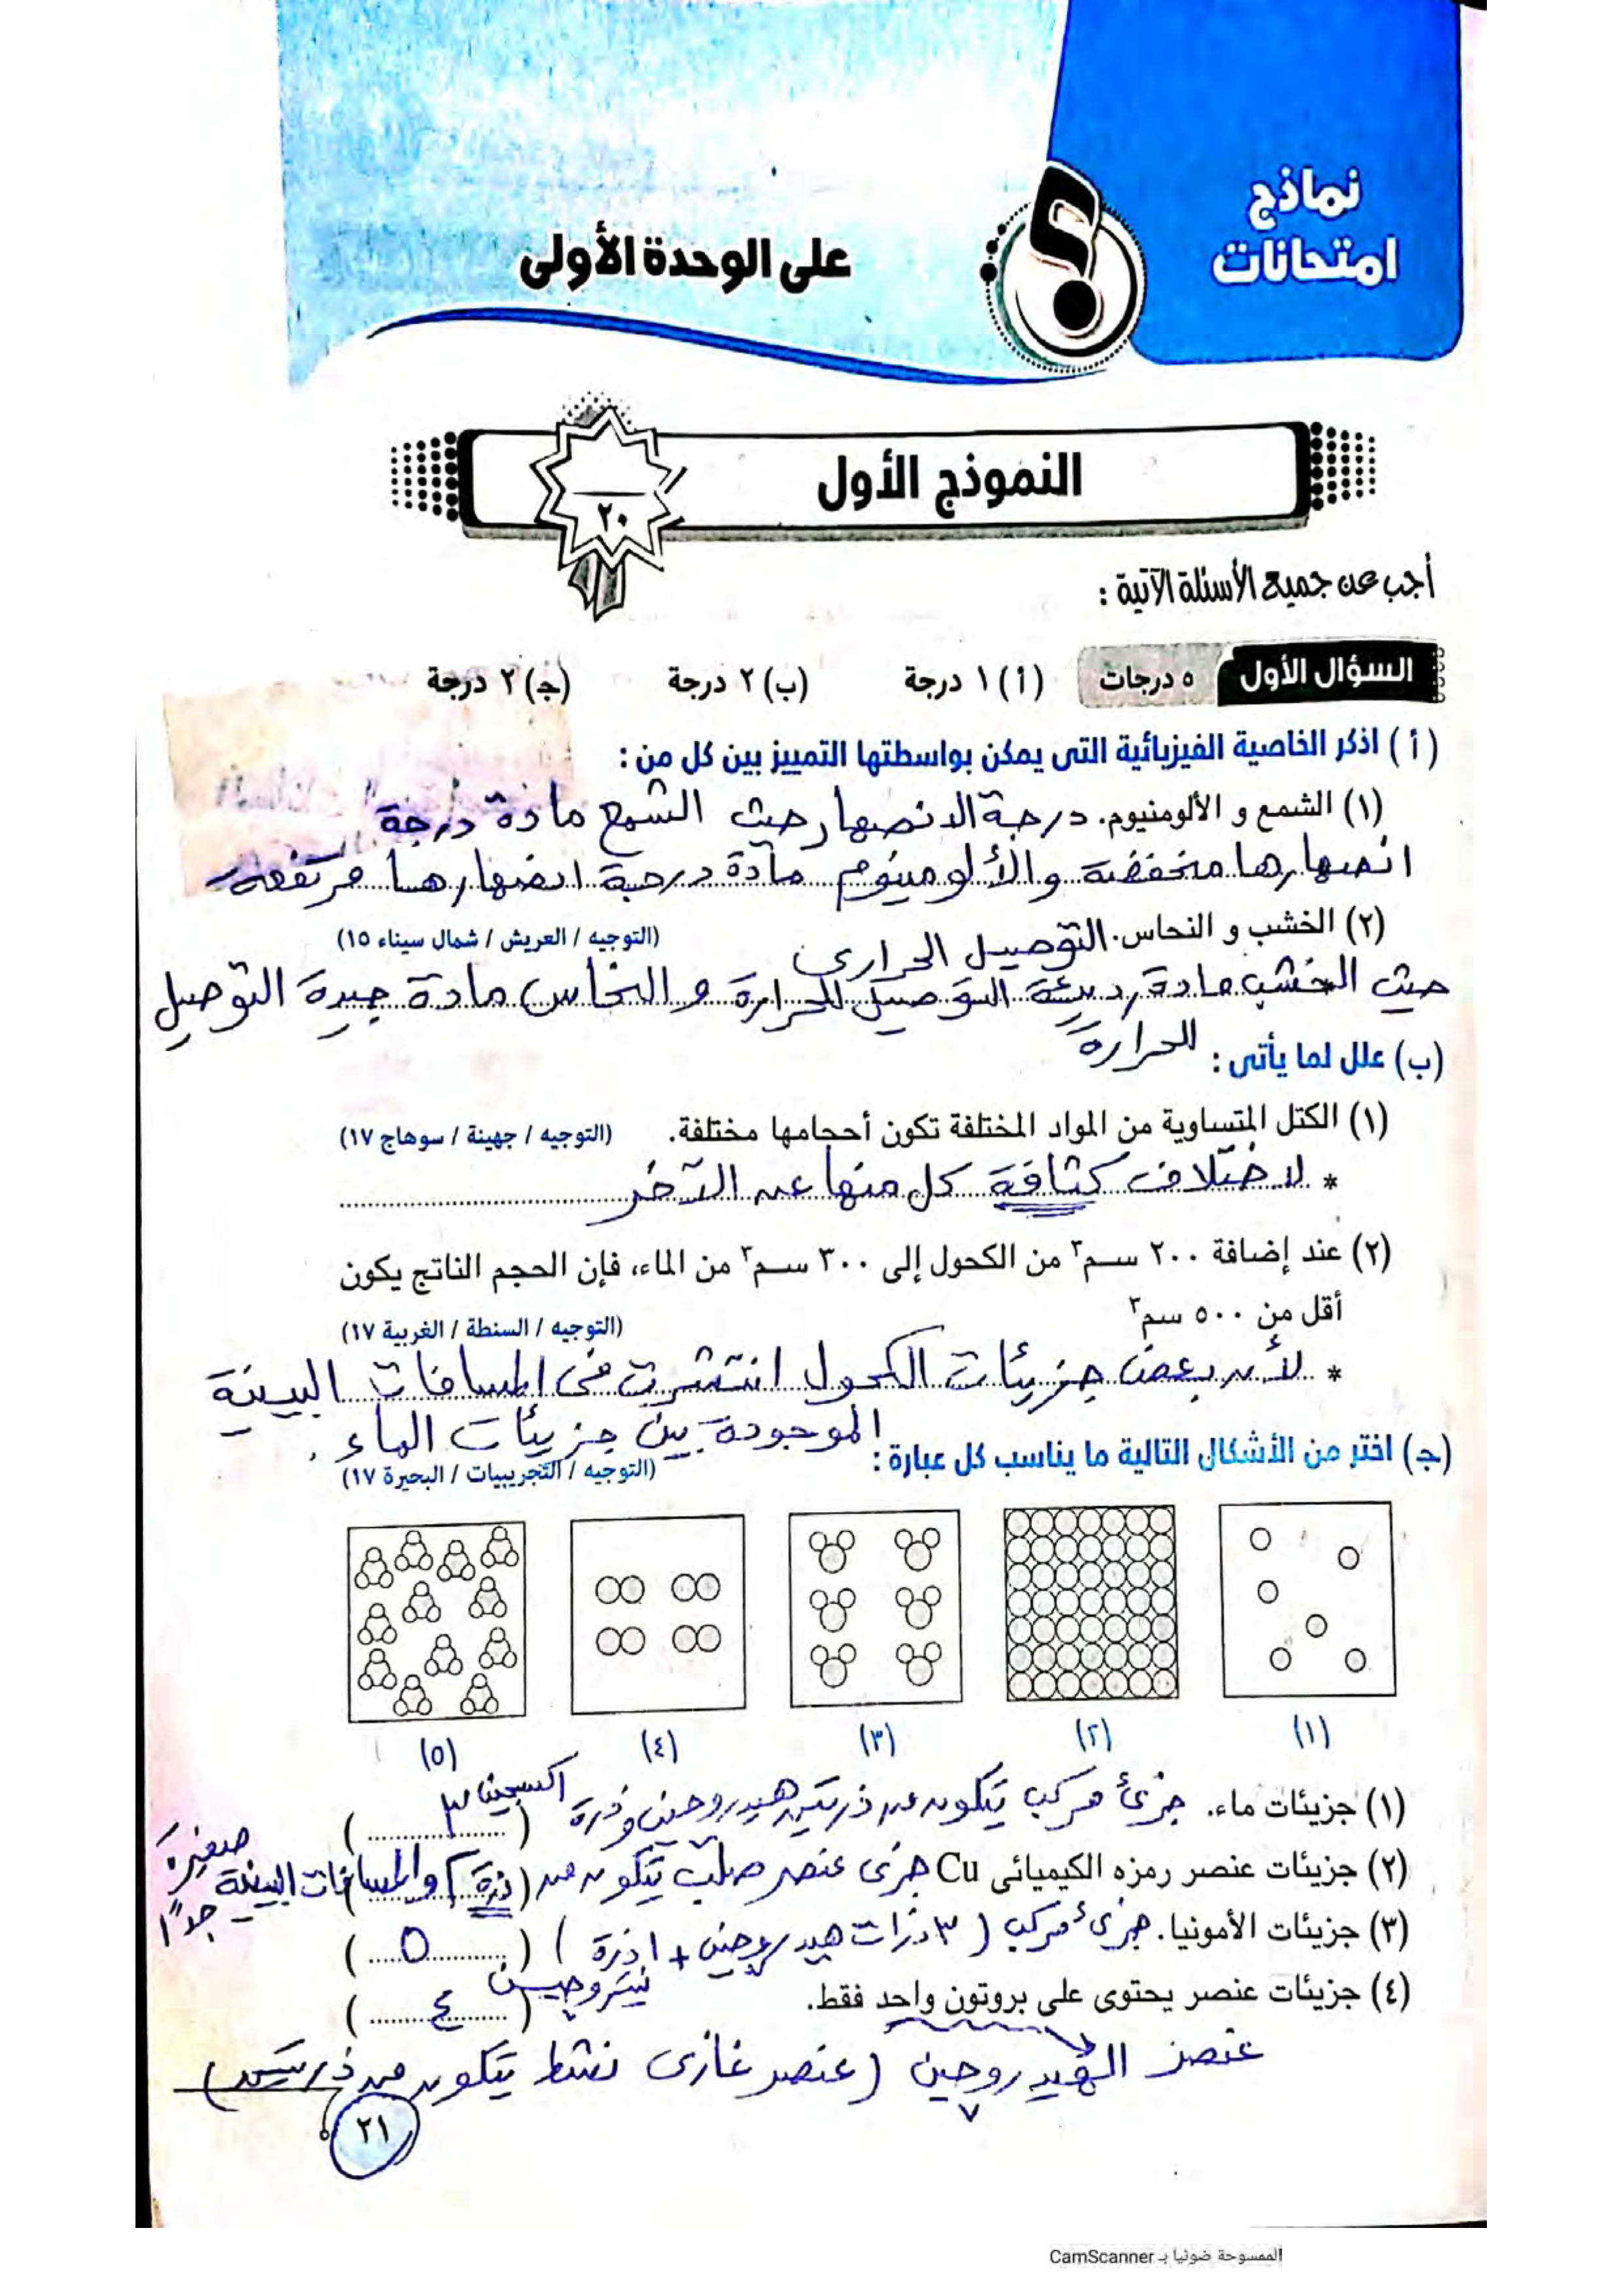 نماذج
امتحانات
على الوحدة الأولى
النموذج الأول
٢٠
أجب عن جميع الأسئلة الآتية :
السؤال الأول ٥ درجات (أ) ١ درجة (ب) ٢ درجة (جـ) ٢ درجة
(أ) اذكر الخاصية الفيزيائية التى يمكن بواسطتها التمييز بين كل من :
(١) الشمع و الألومنيوم. درجة الانصهار حيث الشمع مادة درجة
انصهارها منخفضة والألومنيوم مادة درجة انصهارها مرتفعة
(٢) الخشب و النحاس. التوصيل الحرارى (التوجيه / العريش / شمال سيناء ١٥)
حيث الخشب مادة رديئة التوصيل للحرارة و النحاس مادة جيدة التوصيل
للحرارة
(ب) علل لما يأتى :
(١) الكتل المتساوية من المواد المختلفة تكون أحجامها مختلفة. (التوجيه / جهينة / سوهاج ١٧)
* لاختلاف كثافة كل منها عن الآخر
(٢) عند إضافة ٢٠٠ سم٣ من الكحول إلى ٣٠٠ سم٣ من الماء، فإن الحجم الناتج يكون
أقل من ٥٠٠ سم٣ (التوجيه / السنطة / الغربية ١٧)
* لأن بعض جزيئات الكحول انتشرت فى المسافات البينية
الموجودة بين جزيئات الماء .
(جـ) اختر من الأشكال التالية ما يناسب كل عبارة : (التوجيه / التجريبيات / البحيرة ١٧)
(١) (٢) (٣) (٤) (٥)
(١) جزيئات ماء. جزئ مركب يتكون من ذرتين هيدروجين وذرة أكسجين (٣)
(٢) جزيئات عنصر رمزه الكيميائى Cu جزئ عنصر صلب يتكون من (ذرة) (٢) والمسافات البينية صغيرة جدًا
(٣) جزيئات الأمونيا. جزئ مركب (٣ ذرات هيدروجين + ١ ذرة نيتروجين) (٥)
(٤) جزيئات عنصر يحتوى على بروتون واحد فقط. (٤)
عنصر الهيدروجين (عنصر غازى نشط يتكون من ذرتين)
٢١
الممسوحة ضوئيا بـ CamScanner